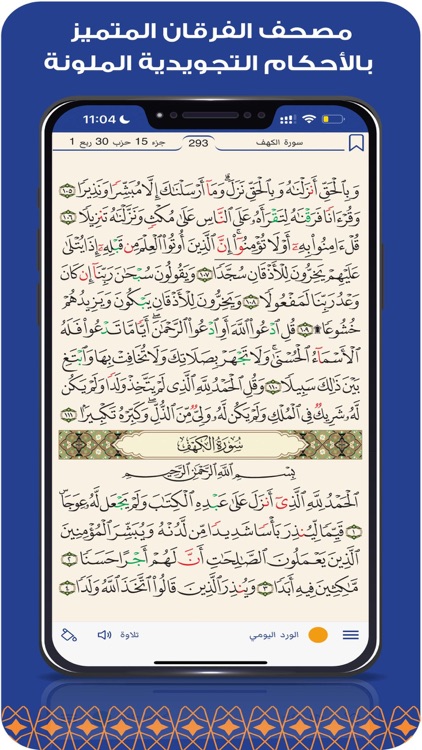 مصحف الفرقان المتميز
بالأحكام التجويدية الملونة
11:04
سورة الكهف
293
جزء 15 حزب 30 ربع 1
وَبِٱلْحَقِّ أَنزَلْنَٰهُ وَبِٱلْحَقِّ نَزَلَ ۗ وَمَآ أَرْسَلْنَٰكَ إِلَّا مُبَشِّرًا وَنَذِيرًا ١٠٥
وَقُرْءَانًا فَرَقْنَٰهُ لِتَقْرَأَهُۥ عَلَى ٱلنَّاسِ عَلَىٰ مُكْثٍ وَنَزَّلْنَٰهُ تَنزِيلًا ١٠٦
قُلْ ءَامِنُوا۟ بِهِۦٓ أَوْ لَا تُؤْمِنُوٓا۟ ۚ إِنَّ ٱلَّذِينَ أُوتُوا۟ ٱلْعِلْمَ مِن قَبْلِهِۦٓ إِذَا يُتْلَىٰ
عَلَيْهِمْ يَخِرُّونَ لِلْأَذْقَانِ سُجَّدًا ١٠٧ وَيَقُولُونَ سُبْحَٰنَ رَبِّنَآ إِن كَانَ
وَعْدُ رَبِّنَا لَمَفْعُولًا ١٠٨ وَيَخِرُّونَ لِلْأَذْقَانِ يَبْكُونَ وَيَزِيدُهُمْ
خُشُوعًا ۩ ١٠٩ قُلِ ٱدْعُوا۟ ٱللَّهَ أَوِ ٱدْعُوا۟ ٱلرَّحْمَٰنَ ۖ أَيًّا مَّا تَدْعُوا۟ فَلَهُ
ٱلْأَسْمَآءُ ٱلْحُسْنَىٰ ۚ وَلَا تَجْهَرْ بِصَلَاتِكَ وَلَا تُخَافِتْ بِهَا وَٱبْتَغِ
بَيْنَ ذَٰلِكَ سَبِيلًا ١١٠ وَقُلِ ٱلْحَمْدُ لِلَّهِ ٱلَّذِى لَمْ يَتَّخِذْ وَلَدًا وَلَمْ يَكُن
لَّهُۥ شَرِيكٌ فِى ٱلْمُلْكِ وَلَمْ يَكُن لَّهُۥ وَلِىٌّ مِّنَ ٱلذُّلِّ ۖ وَكَبِّرْهُ تَكْبِيرًا ١١١
سُورَةُ الكَهْفِ
بِسْمِ ٱللَّهِ ٱلرَّحْمَٰنِ ٱلرَّحِيمِ
ٱلْحَمْدُ لِلَّهِ ٱلَّذِىٓ أَنزَلَ عَلَىٰ عَبْدِهِ ٱلْكِتَٰبَ وَلَمْ يَجْعَل لَّهُۥ عِوَجَا
١ قَيِّمًا لِّيُنذِرَ بَأْسًا شَدِيدًا مِّن لَّدُنْهُ وَيُبَشِّرَ ٱلْمُؤْمِنِينَ
ٱلَّذِينَ يَعْمَلُونَ ٱلصَّٰلِحَٰتِ أَنَّ لَهُمْ أَجْرًا حَسَنًا ٢
مَّٰكِثِينَ فِيهِ أَبَدًا ٣ وَيُنذِرَ ٱلَّذِينَ قَالُوا۟ ٱتَّخَذَ ٱللَّهُ وَلَدًا ٤
الورد اليومي
تلاوة